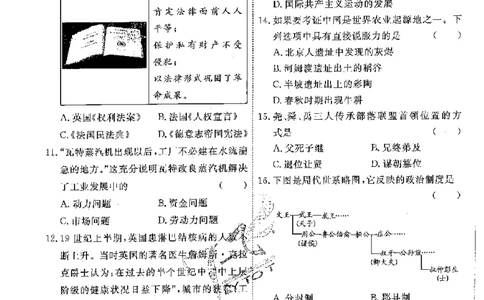 肯定法律面前人人
平等；
保护私有财产不受
侵犯；
以法律形式巩固了革
命成果。
A.英国《权利法案》 B.法国《人权宣言》
C.《法国民法典》 D.《德意志帝国宪法》
11.“瓦特蒸汽机出现以后，工厂不必建在水流湍
急的地方。”这充分说明瓦特改良蒸汽机解决
了工业发展中的 （ ）
A.动力问题 B.资金问题
C.市场问题 D.劳动力问题
12.19世纪上半期，英国患淋巴结核病的人数不
断上升。当时英国的著名医生詹姆斯·克拉
克爵士认为：在过去的半个世纪中，中上层
阶级的健康状况日益下降”，城市的
D.国际共产主义运动的发展
14.如果要考证中国是世界农业起源地之一，下
列选项中具有直接说服力的是 （ ）
A.北京人遗址中发现的灰烬
B.河姆渡遗址出土的稻谷
C.半坡遗址出土的彩陶
D.春秋时期出现牛耕
15.尧、舜、禹三人传承部落联盟首领位置的方
式是 （ ）
A.父死子继 B.兄终弟及
C.退位让贤 D.谋朝篡位
16.下图是周代世系略图，它反映的政治制度是
（ ）
文王 武王……
(天子)
周公 鲁公伯禽 炀公 在公……
(诸侯)
叔牙 公孙兹……
(卿大夫)
叔仲彭生
(士)
A.分封制 B.郡县制